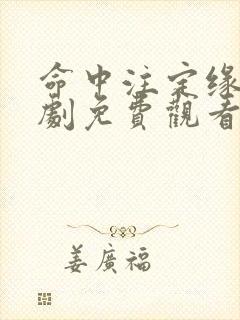 命中注定缘
劇免費觀看
姜廣福